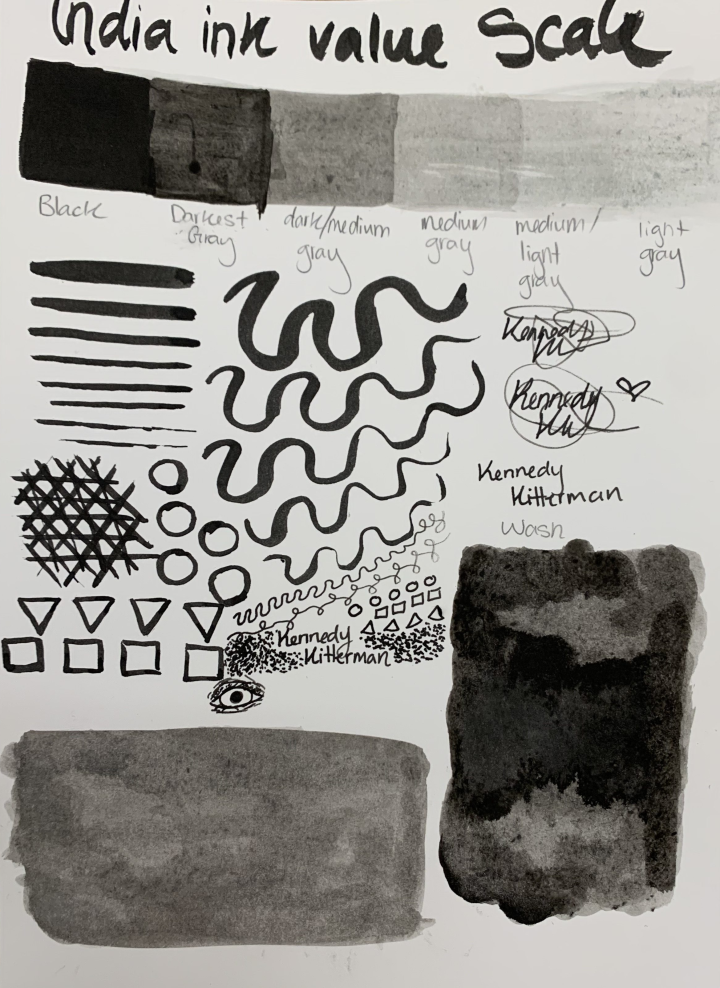 India ink value Scale
Black
Darkest
Gray
dark/medium
gray
medium
gray
medium/
light
gray
light
gray
Kennedy
Kennedy
Kennedy
Kitterman
Wash
Kennedy
Kitterman